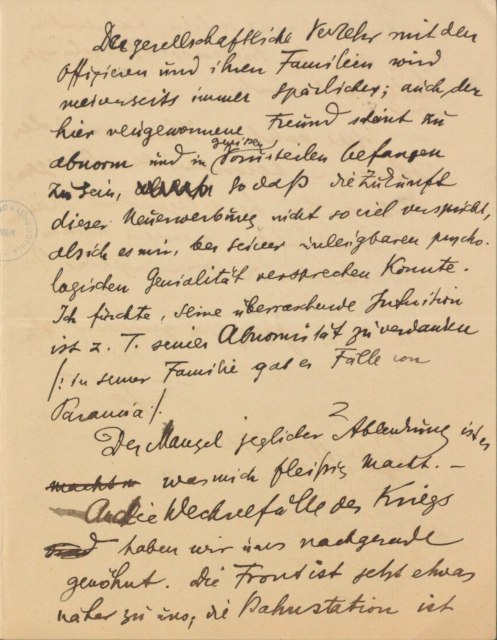 Der gesellschaftliche Verkehr mit den
Offizieren und ihren Familien wird
meinerseits immer spärlicher; auch der
hier neugewonnene Freund scheint zu
abnorm und in gewissen Vorurteilen befangen
zu sein, so daß die Zukunft
dieser Neuerwerbung nicht so viel verspricht,
als ich es mir, bei seiner psycho-
logischen Genialität versprechen konnte.
Ich fürchte, seine überraschende Intuition
ist z. T. seiner Abnormität zu verdanken
/: in seiner Familie gab es Fälle von
Paranoia :/.
Der Mangel jeglicher Ablenkung ist es
was mich fleißig macht. –
An die Wechselfälle des Kriegs
haben wir uns nachgerade
gewöhnt. Die Front ist jetzt etwas
näher zu uns, die Bahnstation ist